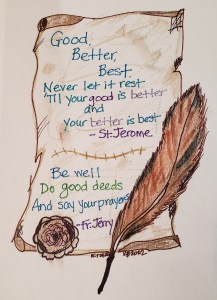 Good,
Better,
Best.
Never let it rest
'Til your good is better
and
your better is best
- St. Jerome
Be well
Do good deeds
And say your prayers
- Fr. Jerry